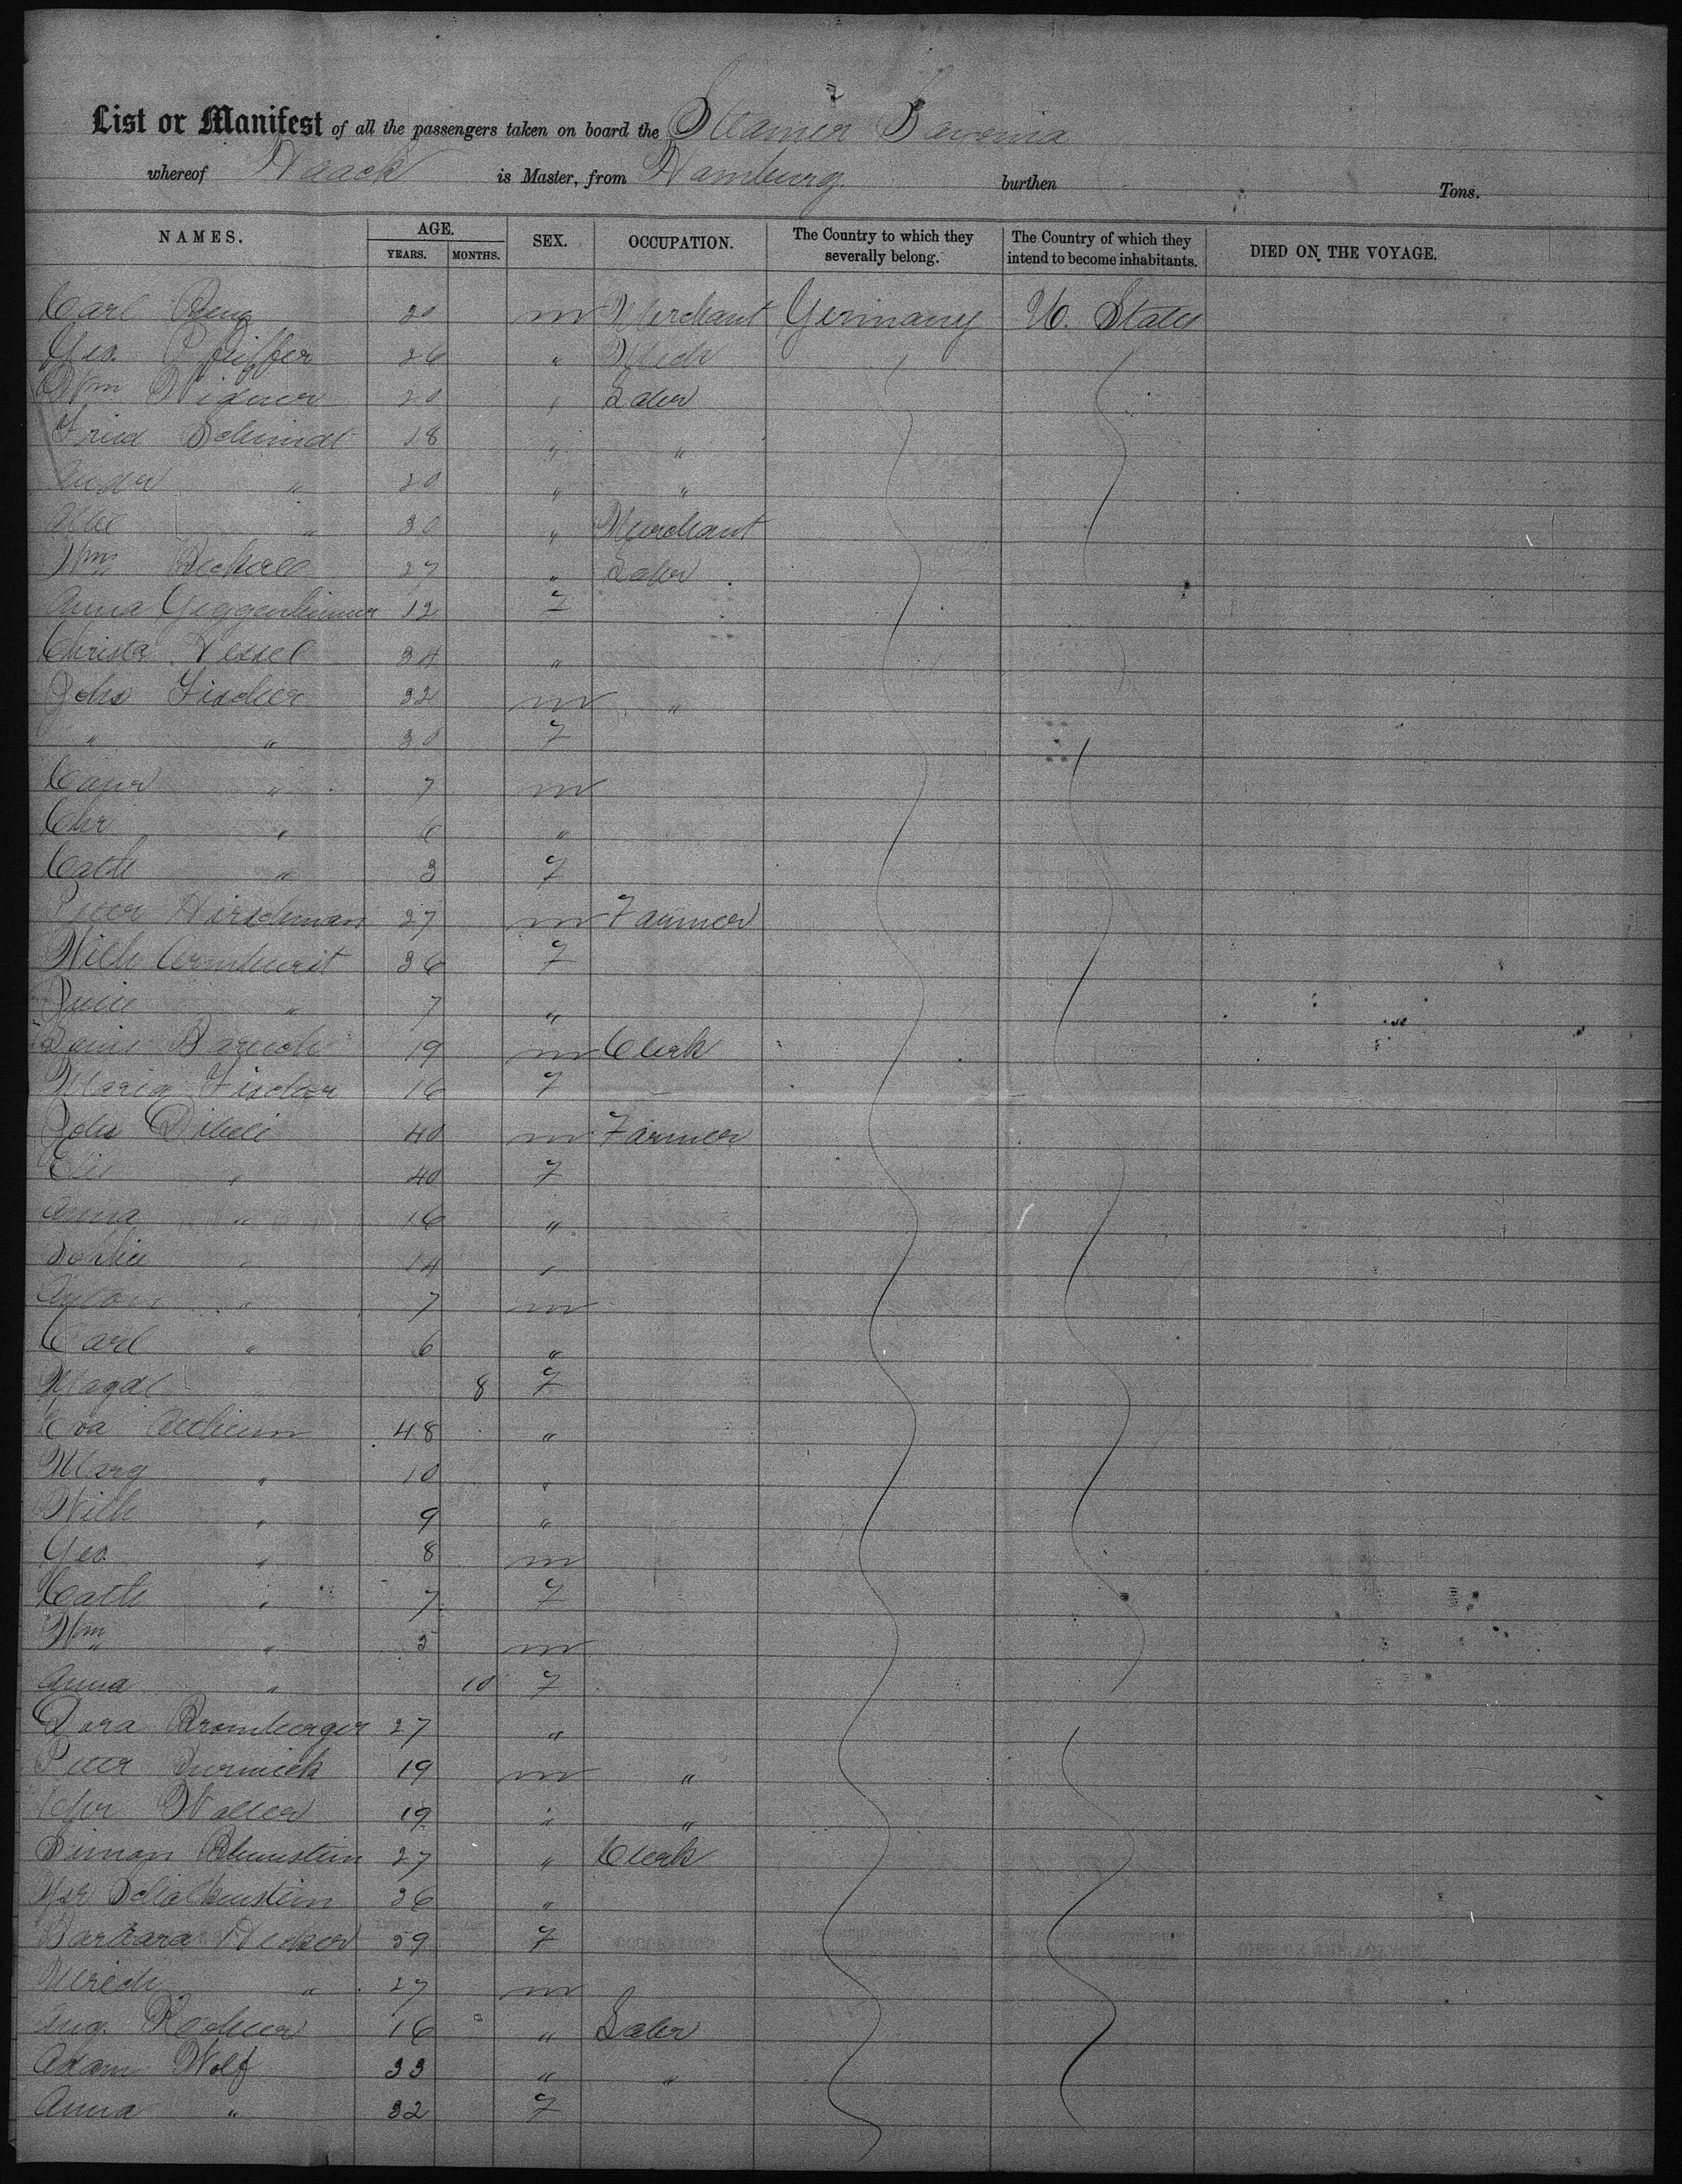 List or Manifest of all the passengers taken on board the Steamer Bavaria
whereof Haack is Master, from Hamburg burthen Tons.
NAMES. AGE. YEARS. MONTHS. SEX. OCCUPATION. The Country to which they severally belong. The Country of which they intend to become inhabitants. DIED ON THE VOYAGE.
Carl 20 m Merchant Germany U. States
Geo. Pfeiffer 26 " Mech
Wm Widmer 20 " Labr
Fried Schmidt 18 " "
Andr " 20 " "
" 30 " Merchant
Wm 27 " Labr
Anna Guggenheimer 12 f
Christa Wessel 34 "
Johs Fischer 32 m "
" " 30 f
" 7 m
Chr " 6 "
Cath " 3 f
Peter Hirschman 27 m Farmer
Wilh 36 f
" 7 "
Louis Baruch 19 m Clerk
Maria Fischer 16 f
Johs 40 m Farmer
Elis " 40 f
Anna " 16 "
Sophie " 14 "
Anton " 7 m
Carl " 6 "
Magdl 8 f
Eva 48 "
Marg " 10 "
Wilh " 9 "
Geo. " 8 m
Cath " 7 f
Wm " 3 m
Anna " 10 f
Dora Bromberger 27 "
Peter 19 m "
Chr Walter 19 " "
Simon Blumstein 27 " Clerk
36 "
Barbara 59 f
Ulrich " 27 m
Aug. 16 " Labr
Adam Wolf 33 " "
Anna " 32 f